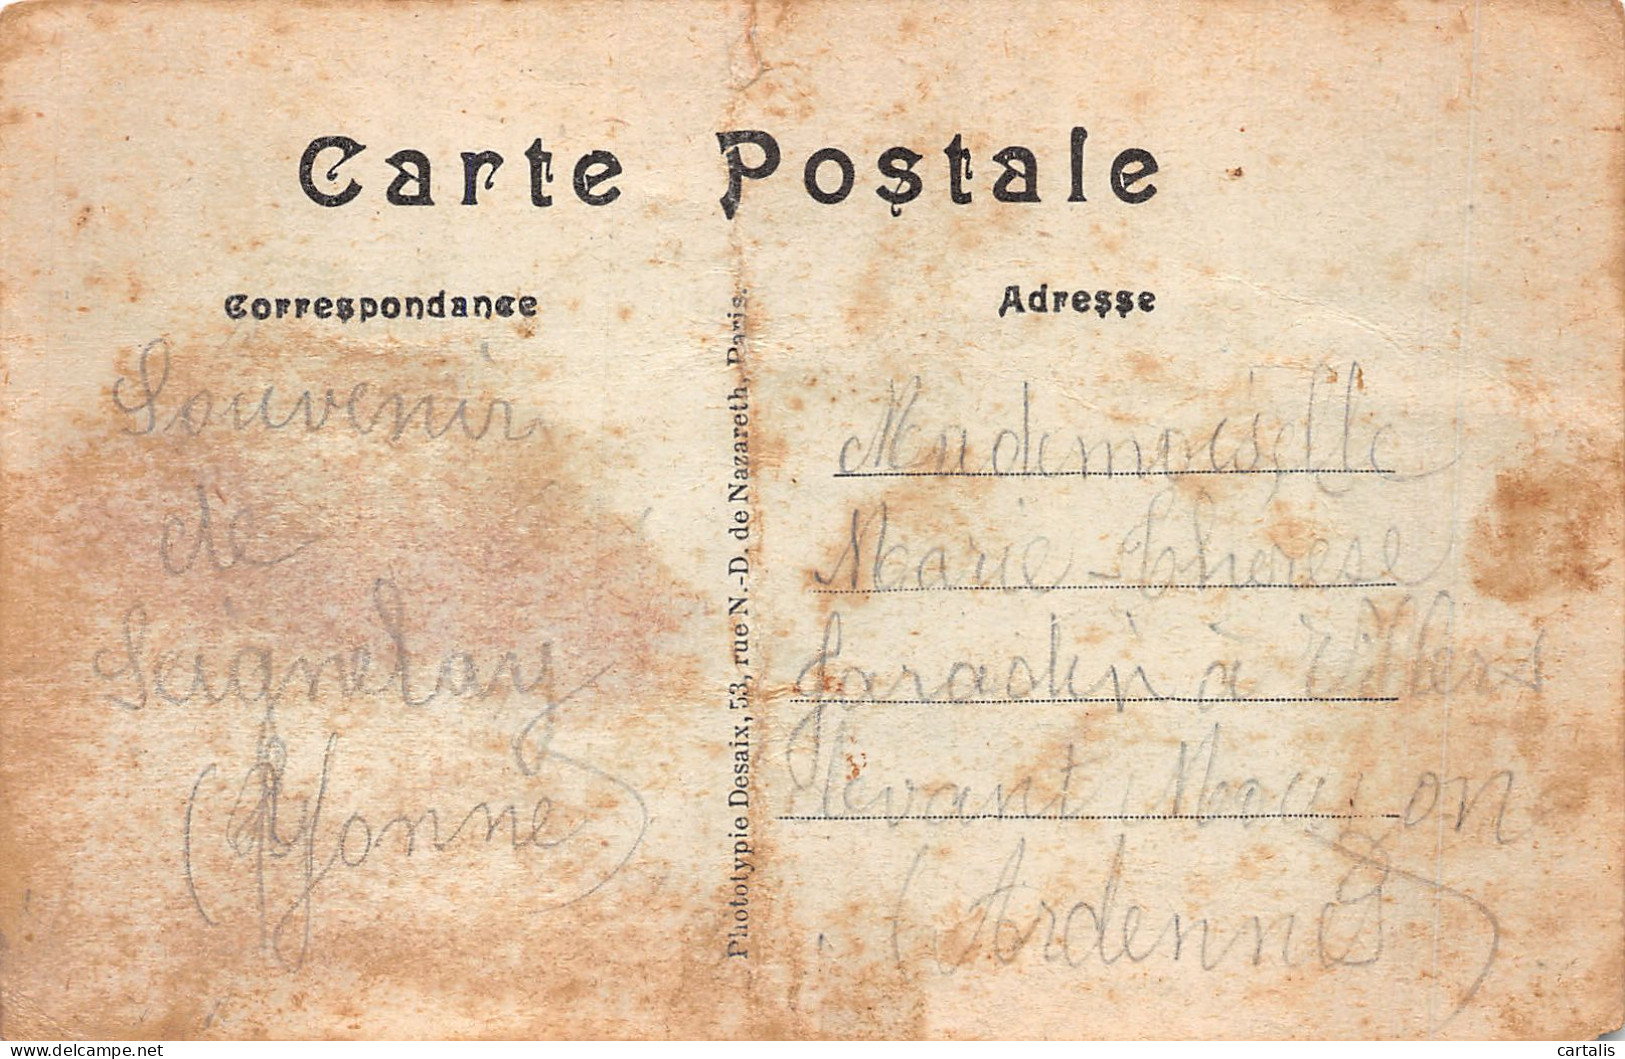 Carte Postale
Correspondance
Adresse
Souvenir
de
Seignelay
(Yonne)
Phototypie Desaix, 53, rue N.-D. de Nazareth, Paris.
Mademoiselle
Marie-Therese
Jaradin à Villers
devant Mouzon
(Ardennes)
cartalis
delcampe.net